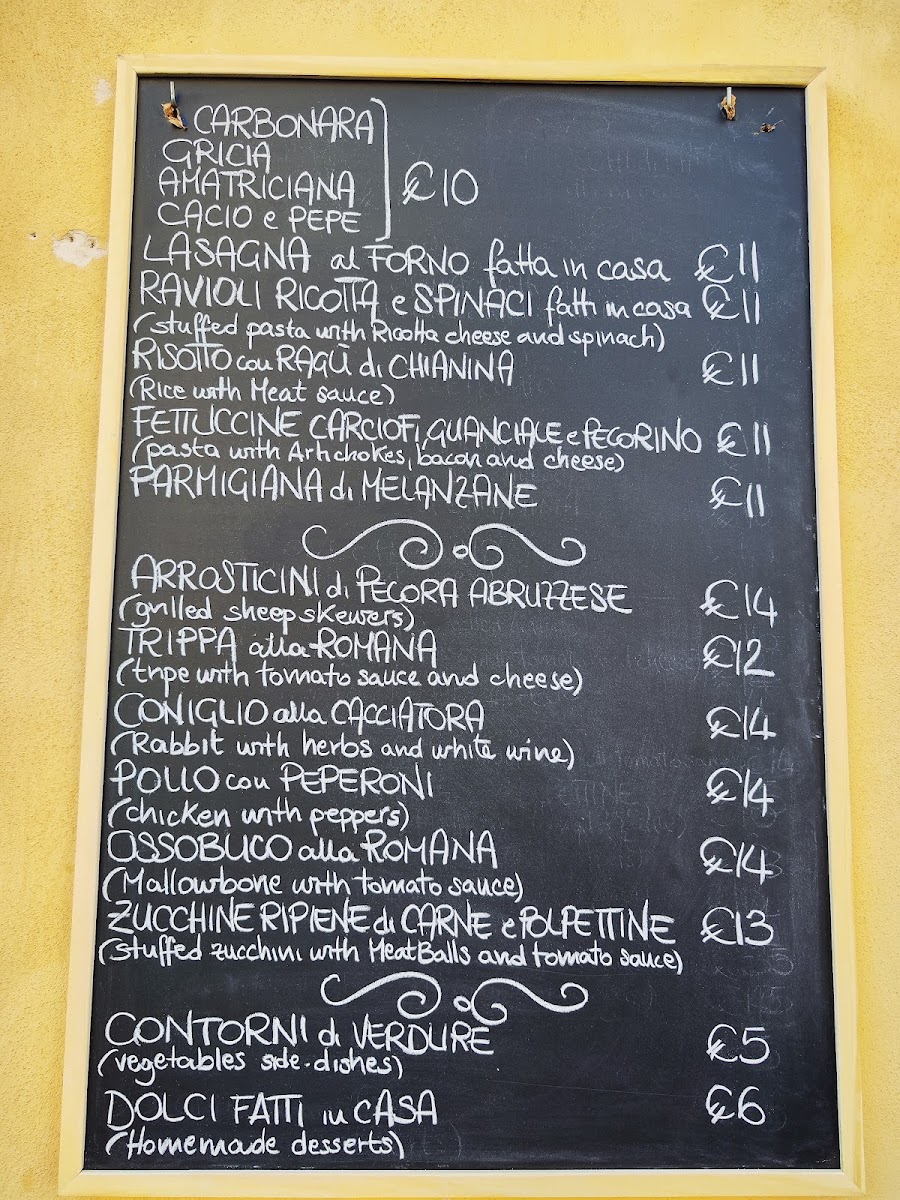 CARBONARA
GRICIA
AMATRICIANA
CACIO e PEPE
€10
LASAGNA al FORNO fatta in casa €11
RAVIOLI RICOTTA e SPINACI fatti in casa €11
(stuffed pasta with Ricotta cheese and spinach)
RISOTTO con RAGÙ di CHIANINA €11
(Rice with Meat sauce)
FETTUCCINE CARCIOFI, GUANCIALE e PECORINO €11
(pasta with Artichokes, bacon and cheese)
PARMIGIANA di MELANZANE €11
ARROSTICINI di PECORA ABRUZZESE €14
(grilled sheep skewers)
TRIPPA alla ROMANA €12
(tripe with tomato sauce and cheese)
CONIGLIO alla CACCIATORA €14
(Rabbit with herbs and white wine)
POLLO con PEPERONI €14
(chicken with peppers)
OSSOBUCO alla ROMANA €14
(Mallowbone with tomato sauce)
ZUCCHINE RIPIENE di CARNE e POLPETTINE €13
(stuffed zucchini with MeatBalls and tomato sauce)
CONTORNI di VERDURE €5
(vegetables side-dishes)
DOLCI FATTI in CASA €6
(Homemade desserts)